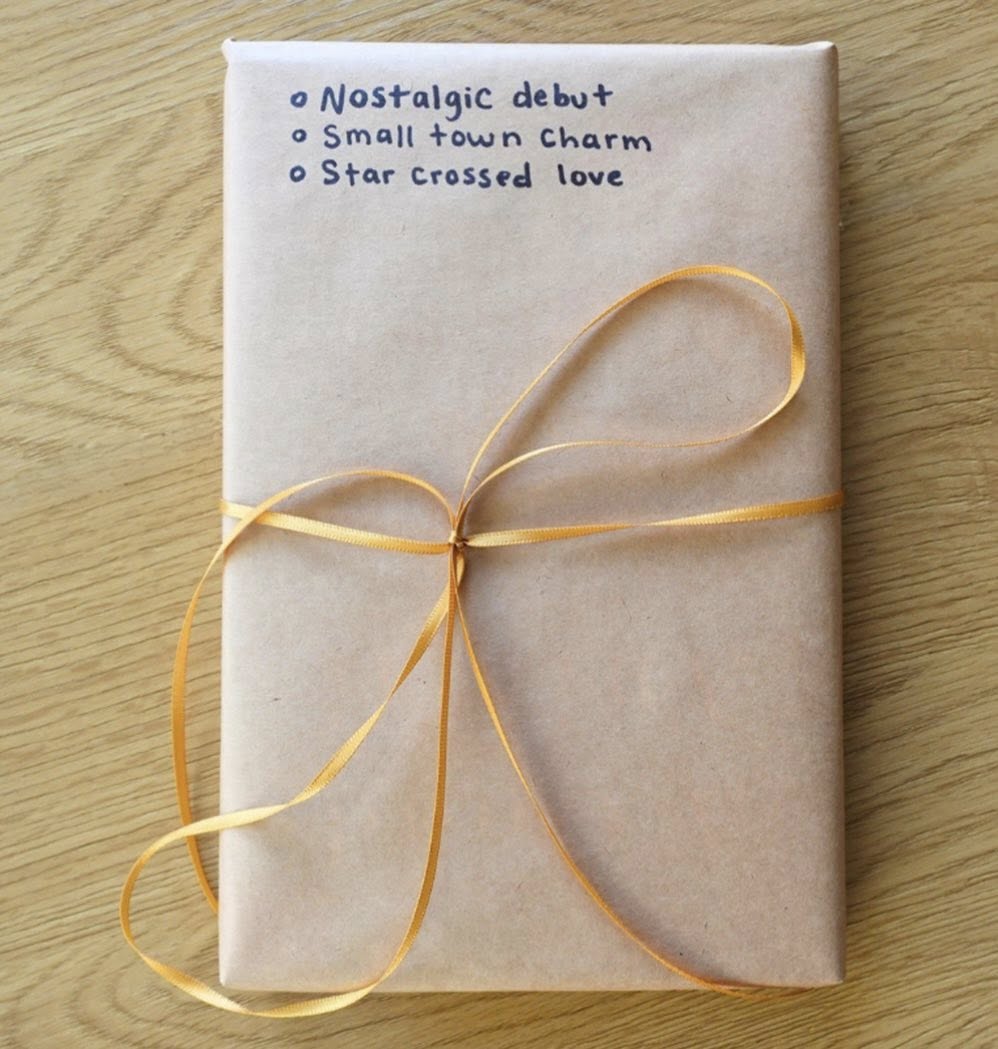 o Nostalgic debut
o Small town charm
o Star crossed love